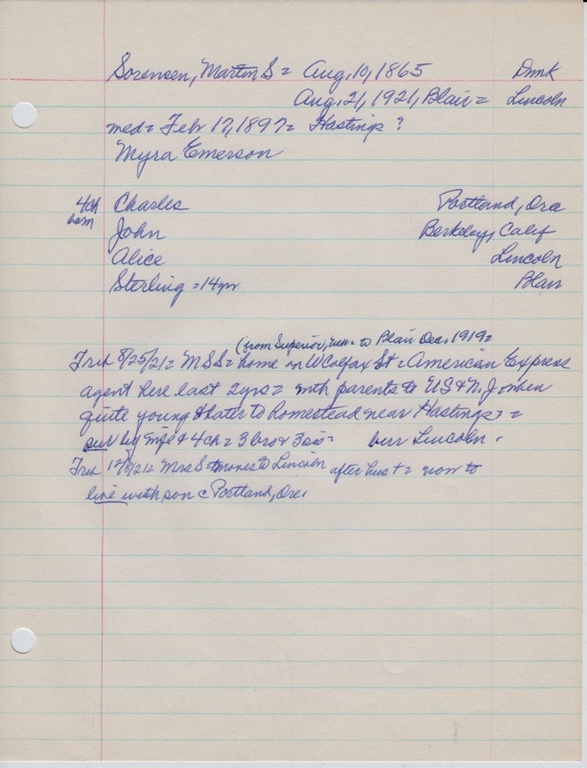 Sorensen, Martin S = Aug, 10, 1865 Dnmk
Aug, 21, 1921, Blair = Lincoln
med = Feb 17, 1897 = Hastings ?
Myra Emerson
4ch Charles Portland, Ore
born John Berkeley, Calif
Alice Lincoln
Sterling = 14yr Blair
(from Superior, to Blair Dec, 1919 =
Trib 8/25/21 = MSS = home on W Colfax St = American Express
agent here last 2yrs = with parents to US &
quite young & later to homestead near Hastings =
sur by wife & 4ch = 3 bro & 3 sis = bur Lincoln .
Trib Mrs S = moves to Lincoln after hus + = now to
live with son C Portland, Ore,